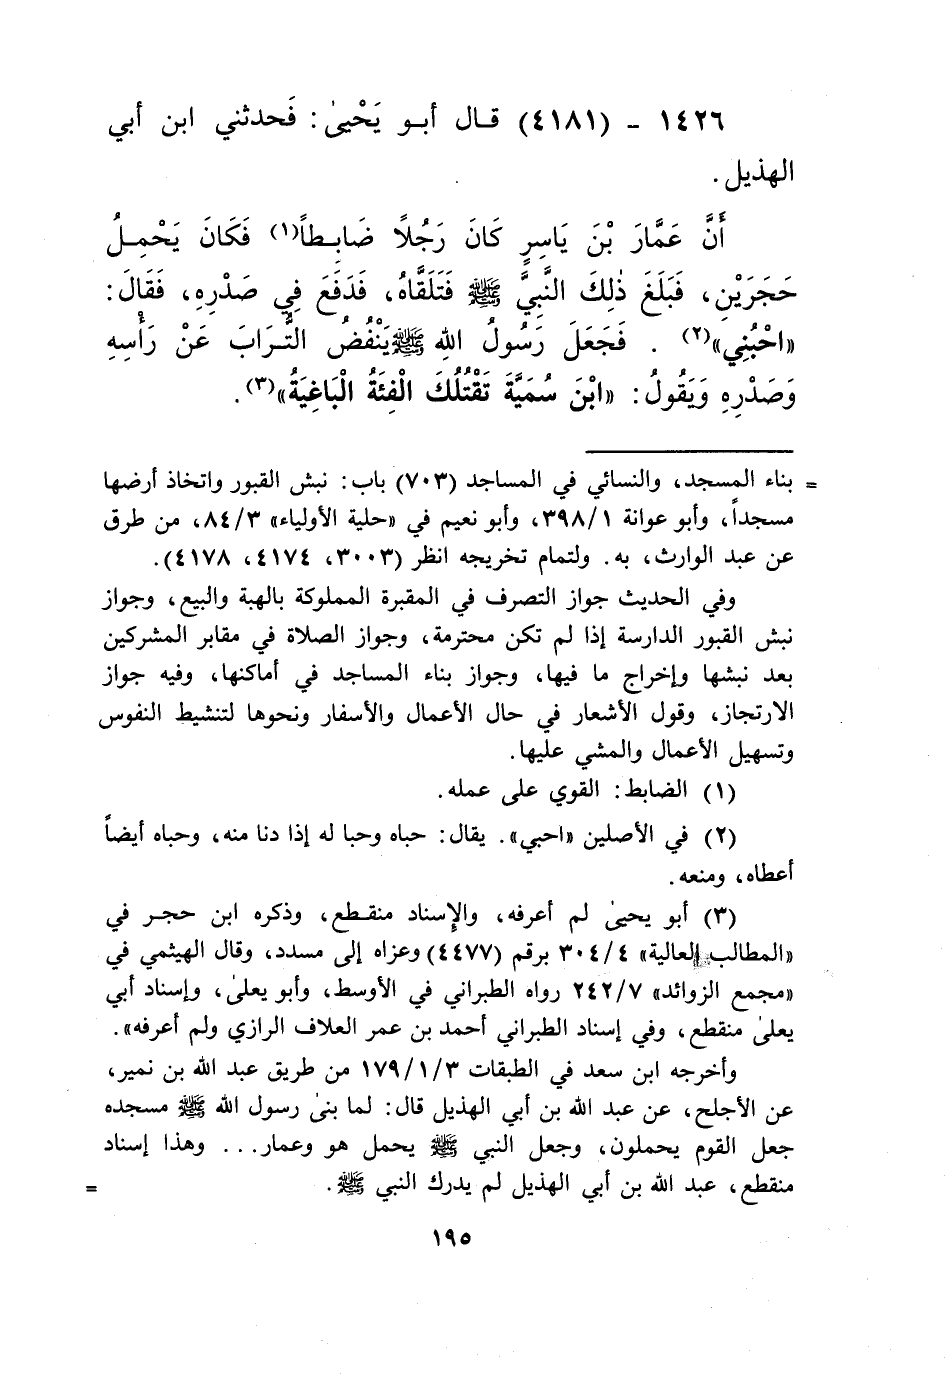 ١٤٢٦ - (٤١٨١) قال أبو يَحْيىٰ: فَحدثني ابن أبي
الهذيل.
أَنَّ عَمَّارَ بْنَ يَاسِرٍ كَانَ رَجُلًا ضَابِطاً(١) فَكَانَ يَحْمِلُ
حَجَرَيْنِ، فَبَلَغَ ذٰلِكَ النَّبِيَّ ﷺ فَتَلَقَّاهُ، فَدَفَعَ فِي صَدْرِهِ، فَقَالَ:
«احْبُنِي»(٢) . فَجَعَلَ رَسُولُ اللهِ ﷺ يَنْفُضُ التُّرَابَ عَنْ رَأْسِهِ
وَصَدْرِهِ وَيَقُولُ: «ابْنَ سُمَيَّةَ تَقْتُلُكَ الْفِئَةُ الْبَاغِيَةُ»(٣).
= بناء المسجد، والنسائي في المساجد (٧٠٣) باب: نبش القبور واتخاذ أرضها
مسجداً، وأبو عوانة ٣٩٨/١، وأبو نعيم في «حلية الأولياء» ٨٤/٣، من طرق
عن عبد الوارث، به. ولتمام تخريجه انظر (٣٠٠٣، ٤١٧٤، ٤١٧٨).
وفي الحديث جواز التصرف في المقبرة المملوكة بالهبة والبيع، وجواز
نبش القبور الدارسة إذا لم تكن محترمة، وجواز الصلاة في مقابر المشركين
بعد نبشها وإخراج ما فيها، وجواز بناء المساجد في أماكنها، وفيه جواز
الارتجاز، وقول الأشعار في حال الأعمال والأسفار ونحوها لتنشيط النفوس
وتسهيل الأعمال والمشي عليها.
(١) الضابط: القوي على عمله.
(٢) في الأصلين «احبي». يقال: حباه وحبا له إذا دنا منه، وحباه أيضاً
أعطاه، ومنعه.
(٣) أبو يحيىٰ لم أعرفه، والإسناد منقطع، وذكره ابن حجر في
«المطالب العالية» ٣٠٤/٤ برقم (٤٤٧٧) وعزاه إلى مسدد، وقال الهيثمي في
«مجمع الزوائد» ٢٤٢/٧ رواه الطبراني في الأوسط، وأبو يعلىٰ، وإسناد أبي
يعلىٰ منقطع، وفي إسناد الطبراني أحمد بن عمر العلاف الرازي ولم أعرفه».
وأخرجه ابن سعد في الطبقات ١٧٩/١/٣ من طريق عبد الله بن نمير،
عن الأجلح، عن عبد الله بن أبي الهذيل قال: لما بنىٰ رسول الله ﷺ مسجده
جعل القوم يحملون، وجعل النبي ﷺ يحمل هو وعمار... وهذا إسناد
منقطع، عبد الله بن أبي الهذيل لم يدرك النبي ﷺ. =
١٩٥